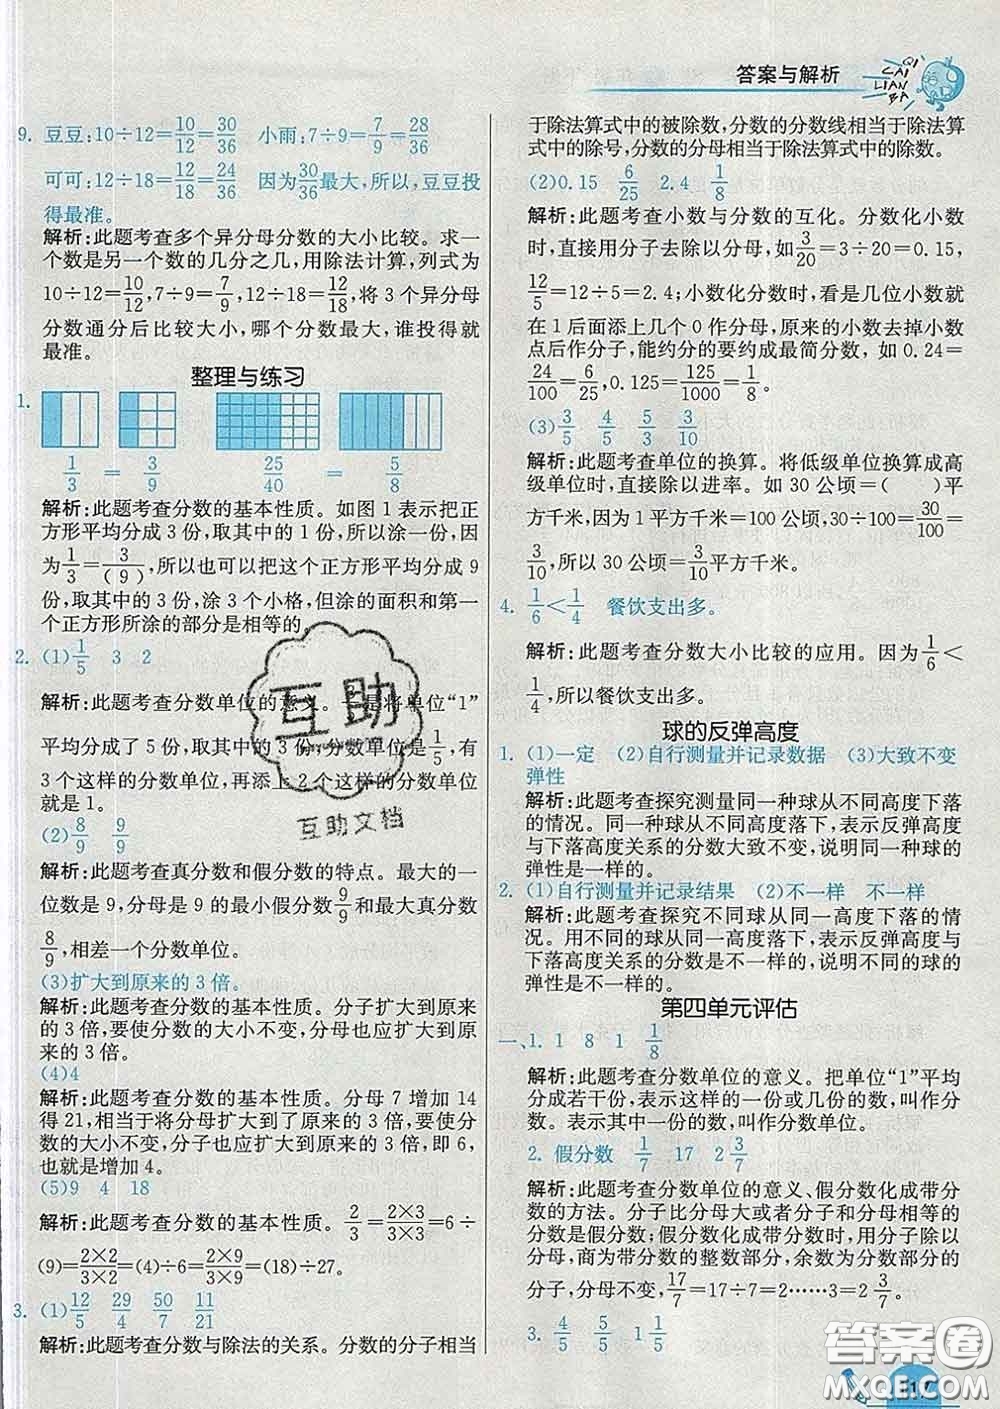 答案与解析
QI
CAI
LIAN
BA
9. 豆豆:10÷12=10/12=30/36 小雨:7÷9=7/9=28/36
可可:12÷18=12/18=24/36 因为30/36最大,所以,豆豆投
得最准。
解析:此题考查多个异分母分数的大小比较。求一
个数是另一个数的几分之几,用除法计算,列式为
10÷12=10/12,7÷9=7/9,12÷18=12/18,将3个异分母
分数通分后比较大小,哪个分数最大,谁投得就
最准。
整理与练习
1.
1/3 = 3/9 25/40 = 5/8
解析:此题考查分数的基本性质。如图1表示把正
方形平均分成3份,取其中的1份,所以涂一份,因
为1/3=3/(9),所以也可以把这个正方形平均分成9
份,取其中的3份,涂3个小格,但涂的面积和第一
个正方形所涂的部分是相等的。
2. (1)1/5 3 2
解析:此题考查分数单位的意义。
是将单位“1”
平均分成了5份,取其中的3份,分数单位是1/5,有
3个这样的分数单位,再添上2个这样的分数单位
就是1。
(2)8/9 9/9
解析:此题考查真分数和假分数的特点。最大的一
位数是9,分母是9的最小假分数9/9和最大真分数
8/9,相差一个分数单位。
(3)扩大到原来的3倍。
解析:此题考查分数的基本性质。分子扩大到原来
的3倍,要使分数的大小不变,分母也应扩大到原
来的3倍。
(4)4
解析:此题考查分数的基本性质。分母7增加14
得21,相当于将分母扩大到了原来的3倍,要使分
数的大小不变,分子也应扩大到原来的3倍,即6,
也就是增加4。
(5)9 4 18
解析:此题考查分数的基本性质。2/3=2×3/3×3=6÷
(9)=2×2/3×2=(4)÷6=2×9/3×9=(18)÷27。
3. (1)12/5 29/4 50/7 11/21
解析:此题考查分数与除法的关系。分数的分子相当
于除法算式中的被除数,分数的分数线相当于除法算
式中的除号,分数的分母相当于除法算式中的除数。
(2)0.15 6/25 2.4 1/8
解析:此题考查小数与分数的互化。分数化小数
时,直接用分子去除以分母,如3/20=3÷20=0.15,
12/5=12÷5=2.4;小数化分数时,看是几位小数就
在1后面添上几个0作分母,原来的小数去掉小数
点后作分子,能约分的要约成最简分数,如0.24=
24/100=6/25,0.125=125/1000=1/8。
(3)3/5 4/5 5/3 3/10
解析:此题考查单位的换算。将低级单位换算成高
级单位时,直接除以进率。如30公顷=(  )平
方千米,因为1平方千米=100公顷,30÷100=30/100=
3/10,所以30公顷=3/10平方千米。
4. 1/6<1/4 餐饮支出多。
解析:此题考查分数大小比较的应用。因为1/6<
1/4,所以餐饮支出多。
球的反弹高度
1. (1)一定 (2)自行测量并记录数据 (3)大致不变
弹性
解析:此题考查探究测量同一种球从不同高度下落
的情况。同一种球从不同高度落下,表示反弹高度
与下落高度关系的分数大致不变,说明同一种球的
弹性是一样的。
2. (1)自行测量并记录结果 (2)不一样 不一样
解析:此题考查探究不同球从同一高度下落的情
况。用不同的球从同一高度落下,表示反弹高度与
下落高度关系的分数是不一样的,说明不同的球的
弹性是不一样的。
第四单元评估
一、1. 1 8 1 1/8
解析:此题考查分数单位的意义。把单位“1”平均
分成若干份,表示这样的一份或几份的数,叫作分
数。表示其中一份的数,叫作分数单位。
2. 假分数 1/7 17 2 3/7
解析:此题考查分数单位的意义、假分数化成带分
数的方法。分子比分母大或者分子和分母相等的
分数是假分数;假分数化成带分数时,用分子除以
分母,商为带分数的整数部分,余数为分数部分的
分子,分母不变,17/7=17÷7=2……3=2 3/7。
3. 4/5 5/5 1 1/5
互助
互助文档
答案圈
MXQE.COM